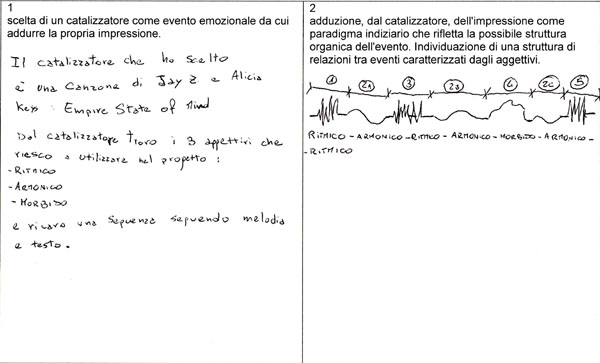 1
scelta di un catalizzatore come evento emozionale da cui
addurre la propria impressione.
Il catalizzatore che ho scelto
è una canzone di Jay Z e Alicia
Keys : Empire State of Mind
Dal catalizzatore trovo i 3 aggettivi che
riesco a utilizzare nel progetto :
- RITMICO
- ARMONICO
- MORBIDO
e ricavo una sequenza seguendo melodia
e testo.
2
adduzione, dal catalizzatore, dell'impressione come
paradigma indiziario che rifletta la possibile struttura
organica dell'evento. Individuazione di una struttura di
relazioni tra eventi caratterizzati dagli aggettivi.
1 2A 3 2B 4 2C 5
RITMICO - ARMONICO - RITMICO - ARMONICO - MORBIDO - ARMONICO -
- RITMICO